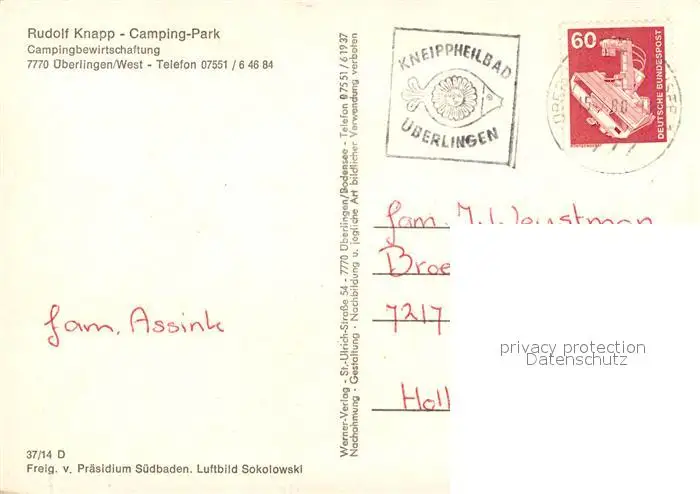 Rudolf Knapp - Camping-Park
Campingbewirtschaftung
7770 Überlingen/West - Telefon 07551 / 6 46 84
fam. Assink
37/14 D
Freig. v. Präsidium Südbaden. Luftbild Sokolowski
Werner-Verlag - St.-Ulrich-Straße 54 - 7770 Überlingen/Bodensee - Telefon 07551/61937
Nachahmung · Gestaltung · Nachbildung u. jegliche Art bildlicher Verwendung verboten
KNEIPPHEILBAD
ÜBERLINGEN
60
DEUTSCHE BUNDESPOST
fam.
Broe
7217
Holl
privacy protection
Datenschutz